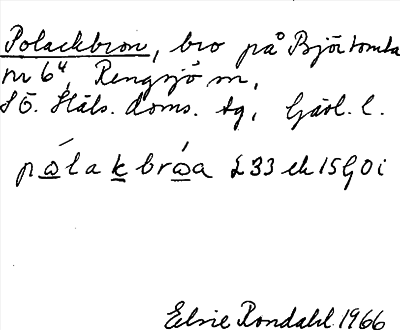 Polackbron, bro på Björtomta
nr 6⁴, Rengsjö sn,
S Ö. Häls. doms. tg, Gävl. l.
pòlakbróa £33 ek 15G0i
Elsie Rondahl 1966